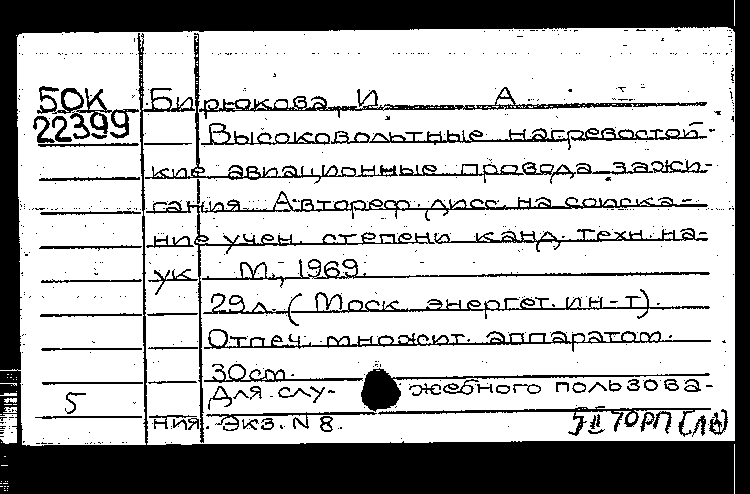 БОК Бирюкова, И А
22399 Высоковольтные нагревостой-
кие авиационные провода зажи-
гания. Автореф. дисс. на соиска-
ние учен. степени канд. техн. на-
ук. М., 1969.
29л. (Моск. энергет. ин-т).
Отпеч. множит. аппаратом.
30см.
5 Для слу- жебного пользова-
ния. Экз. N 8.
5 II 70РП